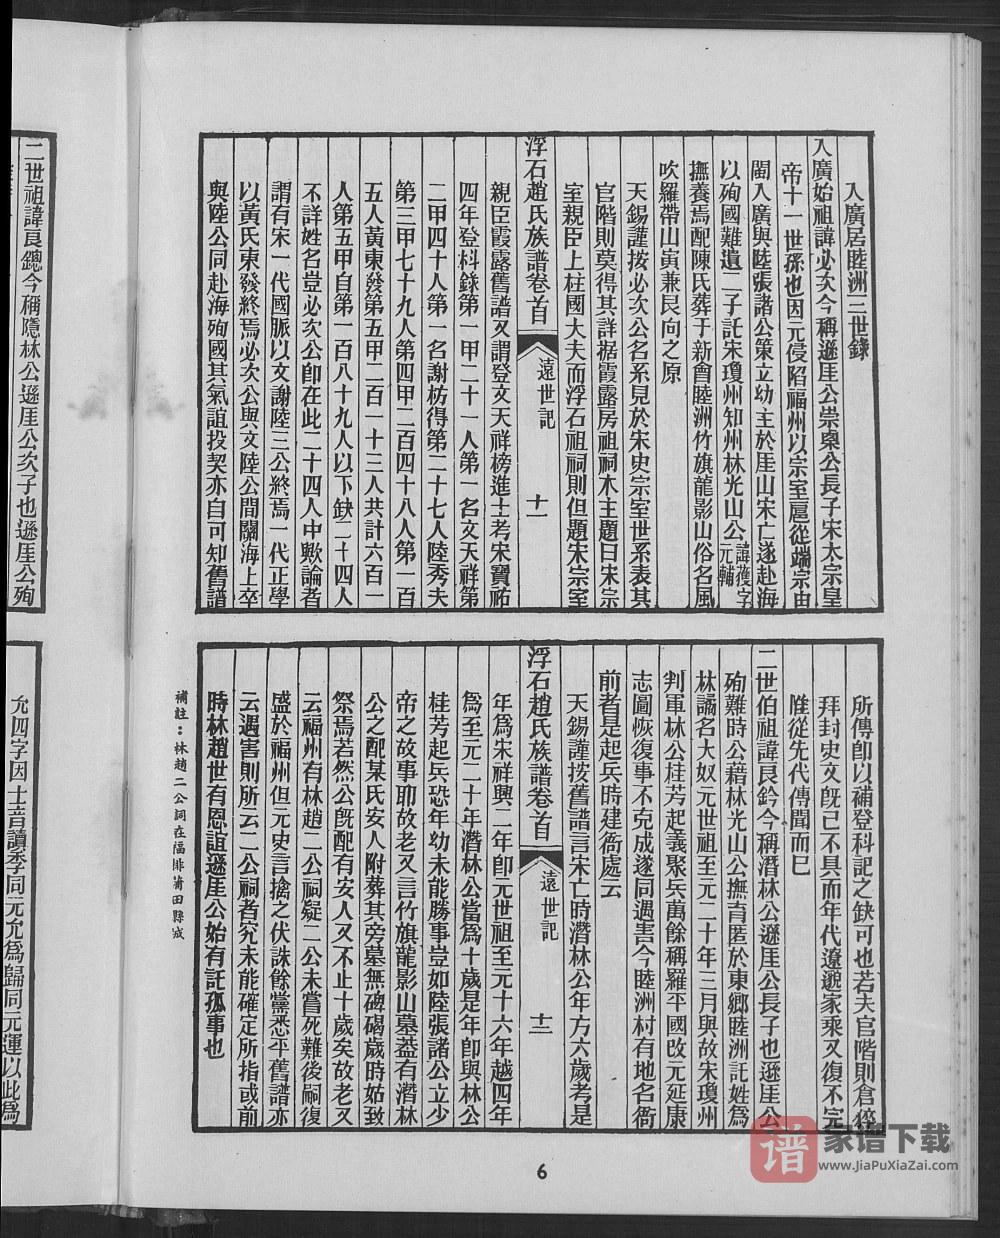 入廣居睦洲三世錄
入廣始祖諱必次今稱遜厓公崇㮚公長子宋太宗皇
帝十一世孫也因元侵陷福州以宗室扈從端宗由
閩入廣與陸張諸公策立幼主於厓山宋亡遂赴海
以殉國難遺二子託宋瓊州知州林光山公諱獲字元輔
撫養焉配陳氏葬于新會睦洲竹旗龍影山俗名風
吹羅帶山寅兼艮向之原
天錫謹按必次公名系見於宋史宗室世系表其
官階則莫得其詳据霞露房祖祠木主題曰宋宗
室親臣上柱國大夫而浮石祖祠則但題宋宗室
浮石趙氏族譜卷首
遠世記
十一
親臣霞露舊譜又謂登文天祥榜進士考宋寶祐
四年登科錄第一甲二十一人第一名文天祥第
二甲四十人第一名謝枋得第二十七人陸秀夫
第三甲七十九人第四甲二百四十八人第一百
五人黃東發第五甲二百一十三人共計六百一
人第五甲自第一百八十九人以下缺二十四人
不詳姓名豈必次公即在此二十四人中歟論者
謂有宋一代國脈以文謝陸三公終焉一代正學
以黃氏東發終焉必次公與文陸公間關海上卒
與陸公同赴海殉國其氣誼投契亦自可知舊譜
所傳卽以補登科記之缺可也若夫官階則倉猝
拜封史文旣已不具而年代遼邈家乘又復不完
惟從先代傳聞而已
二世伯祖諱良鈐今稱潛林公遜厓公長子也遜厓公
殉難時公藉林光山公撫育匿於東鄉睦洲託姓爲
林譎名大奴元世祖至元二十年三月與故宋瓊州
判軍林公桂芳起義聚兵萬餘稱羅平國改元延康
志圖恢復事不克成遂同遇害今睦洲村有地名衙
前者是起兵時建衙處云
天錫謹按舊譜言宋亡時潛林公年方六歲考是
浮石趙氏族譜卷首
遠世記
十二
年爲宋祥興二年卽元世祖至元十六年越四年
爲至元二十年潛林公當爲十歲是年卽與林公
桂芳起兵恐年幼未能勝事豈如陸張諸公立少
帝之故事耶故老又言竹旗龍影山墓葢有潛林
公之配某氏安人附葬其旁墓無碑碣歲時姑致
祭焉若然公旣配有安人又不止十歲矣故老又
云福州有林趙二公祠疑二公未嘗死難後嗣復
盛於福州但元史言擒之伏誅餘黨悉平舊譜亦
云遇害則所云二公祠者究未能確定所指或前
時林趙世有恩誼遜厓公始有託孤事也
補註：林趙二公祠在福建莆田縣城
6
二世祖諱良鏓今稱隱林公遜厓公次子也遜厓公殉
允四字因土音讀季同元允爲歸同元運以此爲
谱
家谱下载
www.JiaPuXiaZai.com